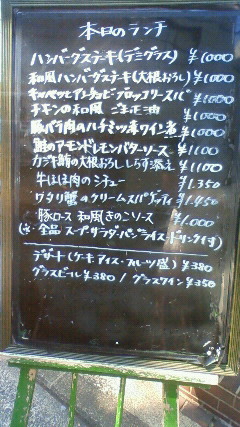 本日のランチ
ハンバーグステーキ(デミグラス) ¥1000
和風ハンバーグステーキ(大根おろし) ¥1000
キャベツとアンチョビ ブロッコリー ¥1000
チキンの和風 ごま正油 ¥1000
豚バラ肉のハチミツ赤ワイン煮 ¥1000
鮪のアーモンドレモンバターソース ¥1100
カジキ鮪の大根おろし しらす添え ¥1100
牛ほほ肉のシチュー ¥1,350
ワタリ蟹のクリームスパゲッティ ¥1,450
豚ロース 和風きのこソース ¥1,000
全品 スープ・サラダ・パン・ライス・ドリンク付
デザート (ケーキ・アイス・フルーツ盛) ¥380
グラスビール ¥380 / グラスワイン ¥350